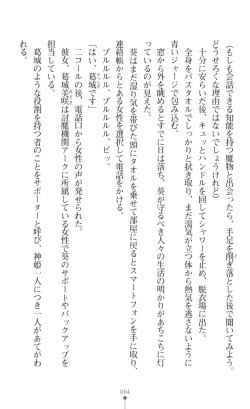 （もしも会話できる知能を持つ魔物と出会ったら、手足を削ぎ落とした後で聞いてみよう。
どうせろくな理由ではないでしょうけれど）
十分に安らいだ後、キュッとハンドルを回してシャワーを止め、脱衣場に出た。
全身をバスタオルでしっかりと拭き取り、まだ湯気が立つ体から熱気を逃さないように
青いジャージで包み込む。
窓から外を眺めるとすでに日は落ち、葵が守るべき人々の生活の明かりがあちこちに灯
っているのが見えた。
葵はまだ湿り気を帯びた頭にタオルを乗せて部屋に戻るとスマートフォンを手に取り、
連絡帳からとある女性を選択して電話をかける。
プルルルル、プルルルル、ピッ。
「はい、葛城です」
二コールの後、電話口から女性の声が発せられた。
彼女、葛城美咲は討魔機関アークに所属している女性で葵のサポートやバックアップを
担当している。
葛城のような役割を持つ者のことをサポーターと呼び、神姫一人につき一人があてがわ
れる。
064